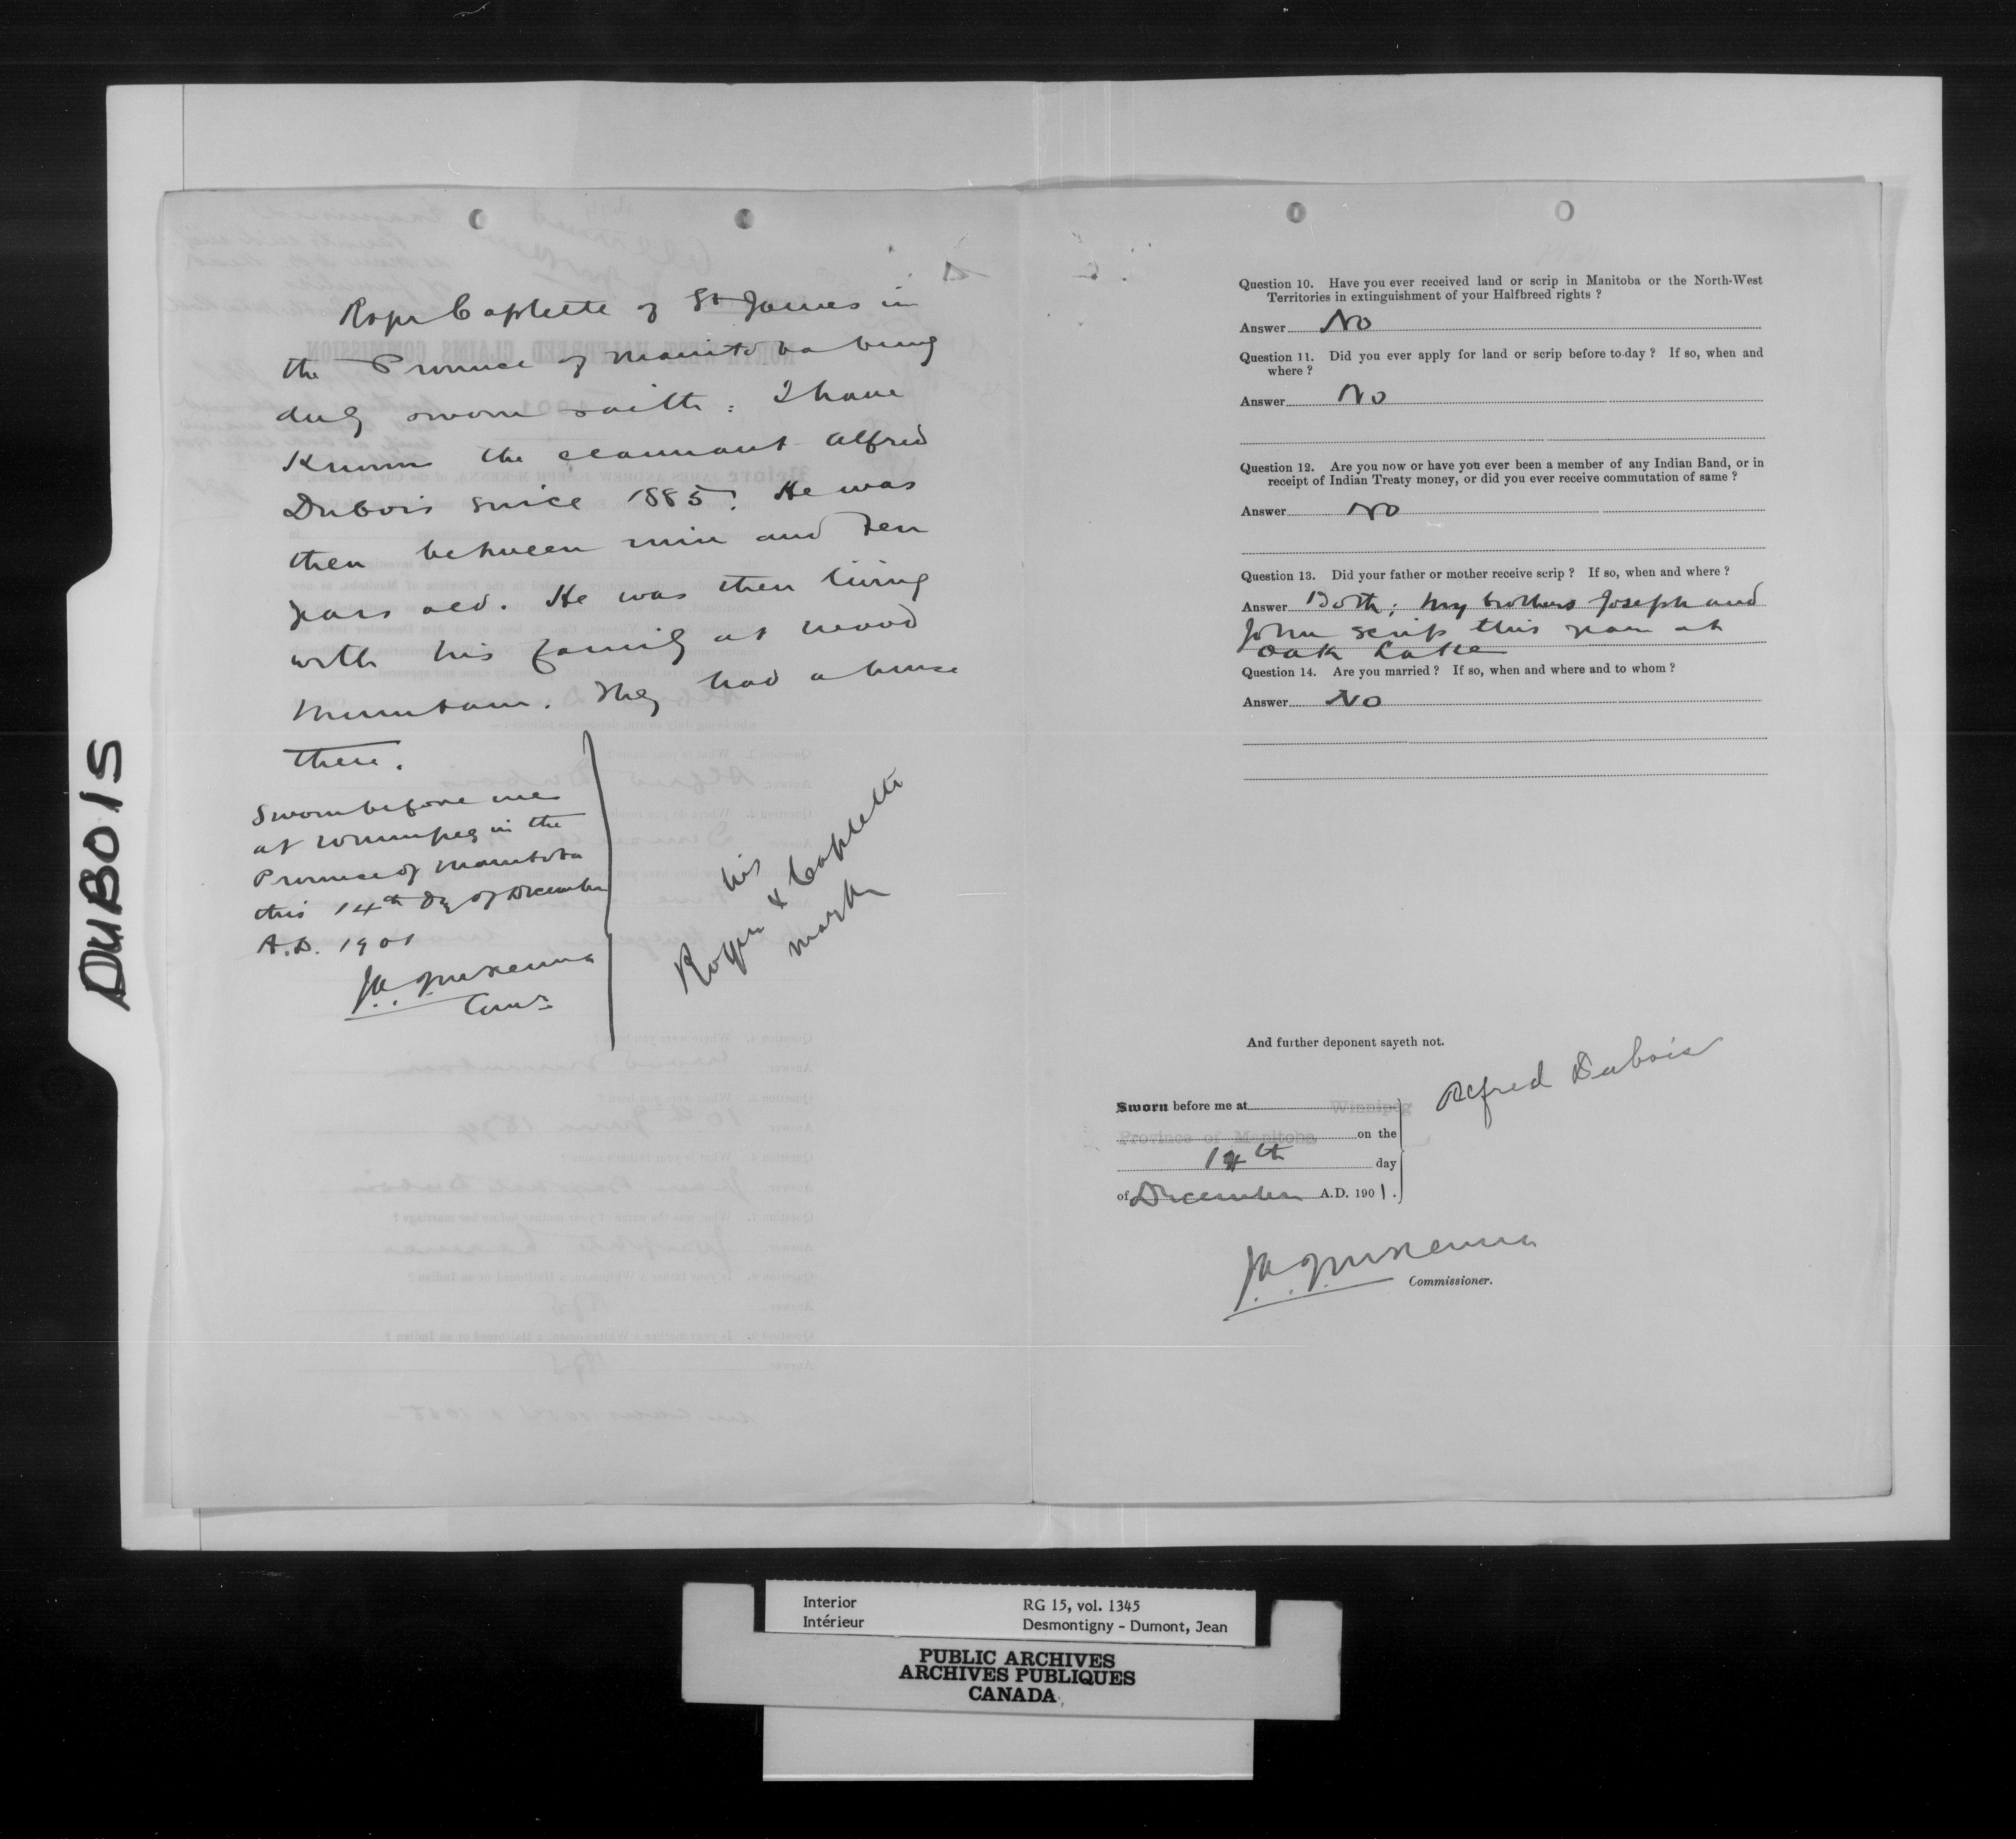 DUBOIS
Roger Caplette of St James in
the Province of Manitoba being
duly sworn saith: I have
Known the claimant Alfred
Dubois since 1885. He was
then between nine and ten
years old. He was then living
with his family at Wood
Mountain. They had a house
there.
Sworn before me
at Winnipeg in the
Province of Manitoba
this 14th Dy of December
A.D. 1901
J.A.J. McKenna
Comr.
his
Roger x Caplette
mark
Question 10. Have you ever received land or scrip in Manitoba or the North-West
Territories in extinguishment of your Halfbreed rights ?
Answer No
Question 11. Did you ever apply for land or scrip before to-day ? If so, when and
where ?
Answer No
Question 12. Are you now or have you ever been a member of any Indian Band, or in
receipt of Indian Treaty money, or did you ever receive commutation of same ?
Answer No
Question 13. Did your father or mother receive scrip ? If so, when and where ?
Answer Both; my brothers Joseph and
John scrip this year at
Oak Lake
Question 14. Are you married ? If so, when and where and to whom ?
Answer No
And further deponent sayeth not.
Alfred Dubois
Sworn before me at Winnipeg
Province of Manitoba on the
14th day
of December A.D. 1901.
J.A.J. McKenna
Commissioner.
Interior
Intérieur
RG 15, vol. 1345
Desmontigny - Dumont, Jean
PUBLIC ARCHIVES
ARCHIVES PUBLIQUES
CANADA